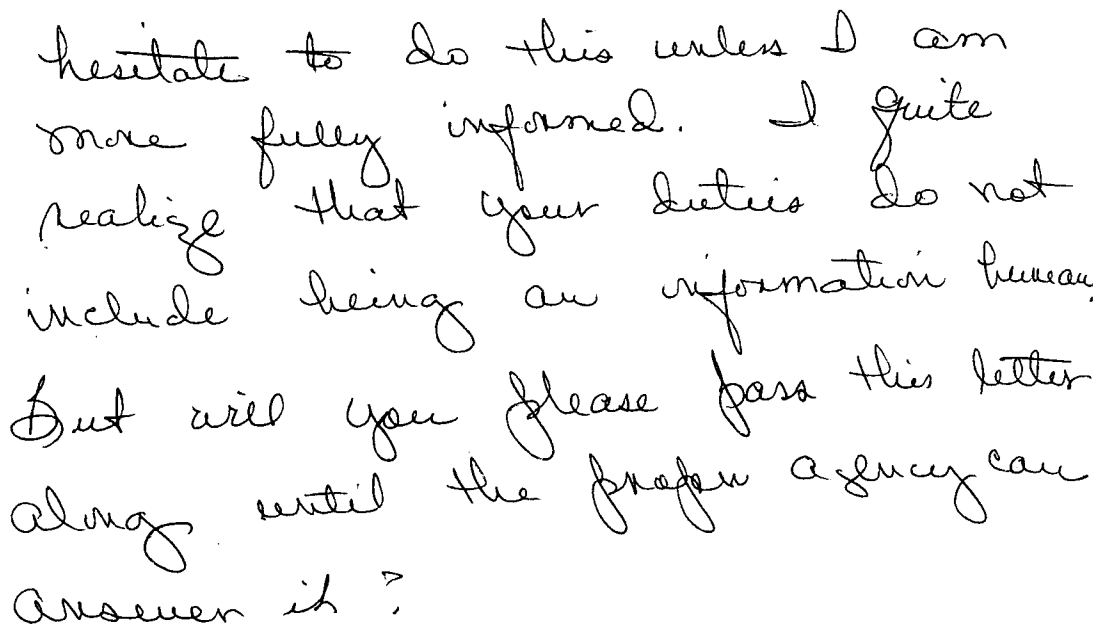 hesitate to do this unless I am
more fully informed. I quite
realize that your duties do not
include being an information bureau,
But will you please pass this letter
along until the proper agency can
answer it?